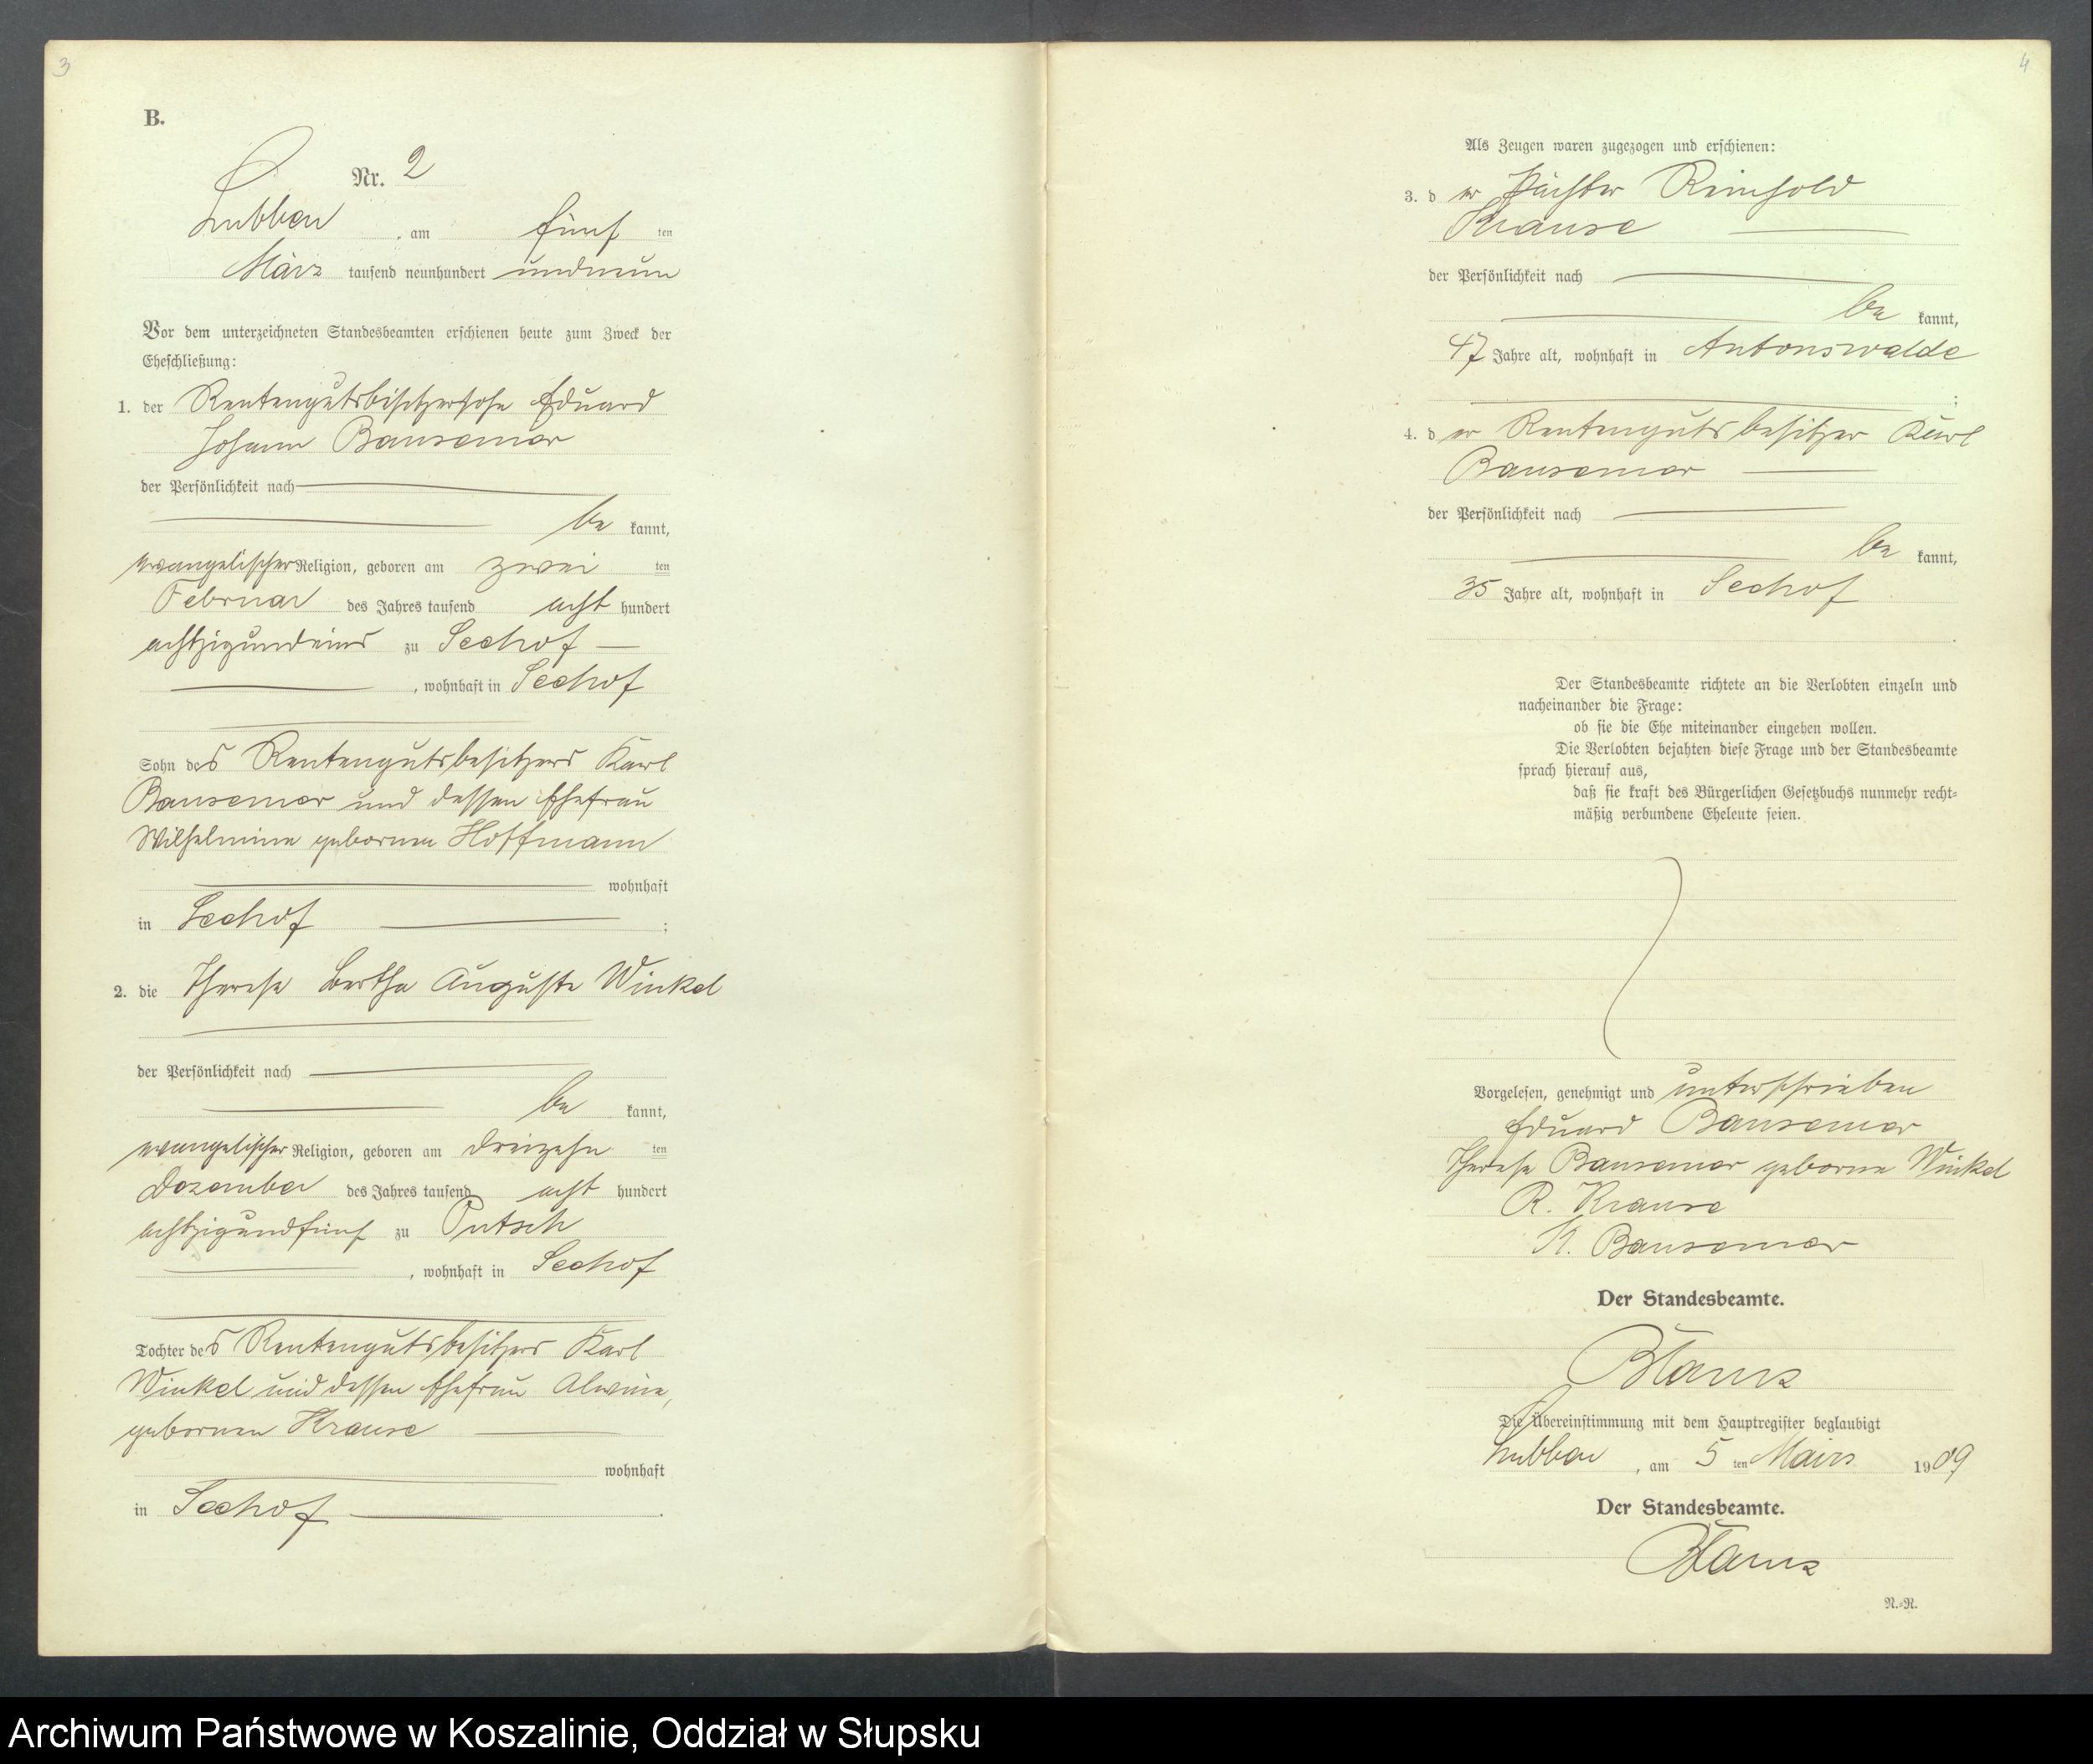 3
B.
Nr. 2
Lubben, am fünf ten
März tausend neunhundert undneun
Vor dem unterzeichneten Standesbeamten erschienen heute zum Zweck der
Eheschließung:
1. der Rentengutsbesitzersohn Eduard
Johann Bansemer
der Persönlichkeit nach
be kannt,
evangelischer Religion, geboren am zwei ten
Februar des Jahres tausend acht hundert
achtzigundeins zu Seehof
, wohnhaft in Seehof
Sohn des Rentengutsbesitzers Karl
Bansemer und dessen Ehefrau
Wilhelmine geborenen Hoffmann
wohnhaft
in Seehof ;
2. die Therese Bertha Auguste Winkel
der Persönlichkeit nach
be kannt,
evangelischer Religion, geboren am dreizehn ten
Dezember des Jahres tausend acht hundert
achtzigundfünf zu Putsch
, wohnhaft in Seehof
Tochter des Rentengutsbesitzers Karl
Winkel und dessen Ehefrau Alwine,
geborenen Krause
wohnhaft
in Seehof .
4
Als Zeugen waren zugezogen und erschienen:
3. der Pächter Reinhold
Krause
der Persönlichkeit nach
be kannt,
47 Jahre alt, wohnhaft in Antonswalde
;
4. der Rentengutsbesitzer Karl
Bansemer
der Persönlichkeit nach
be kannt,
35 Jahre alt, wohnhaft in Seehof
.
Der Standesbeamte richtete an die Verlobten einzeln und
nacheinander die Frage:
ob sie die Ehe miteinander eingehen wollen.
Die Verlobten bejahten diese Frage und der Standesbeamte
sprach hierauf aus,
daß sie kraft des Bürgerlichen Gesetzbuchs nunmehr recht-
mäßig verbundene Eheleute seien.
Vorgelesen, genehmigt und unterschrieben
Eduard Bansemer
Therese Bansemer geborene Winkel
R. Krause
K. Bansemer
Der Standesbeamte.
Die Übereinstimmung mit dem Hauptregister beglaubigt
Lubben, am 5 ten März 1909
Der Standesbeamte.
N.-N.
Archiwum Państwowe w Koszalinie, Oddział w Słupsku